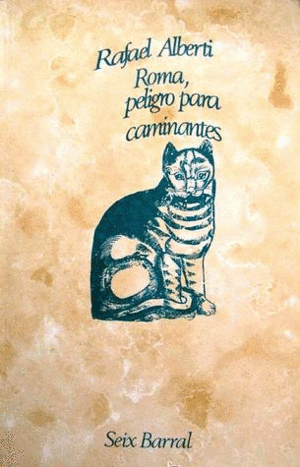 Rafael Alberti
Roma,
peligro para
caminantes
Seix Barral